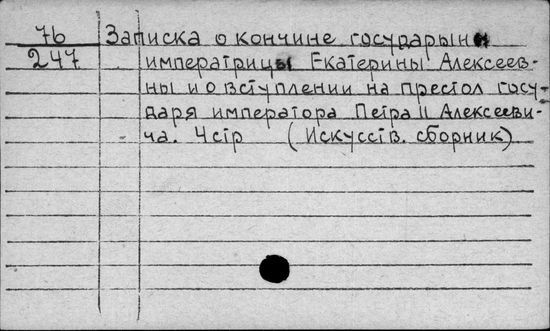 76 Записка о кончине государыни
247 императрицы Екатерины Алексеев-
ны и о вступлении на престол госу-
даря императора Петра II Алексееви-
ча. 4 стр (Искусств. сборник)